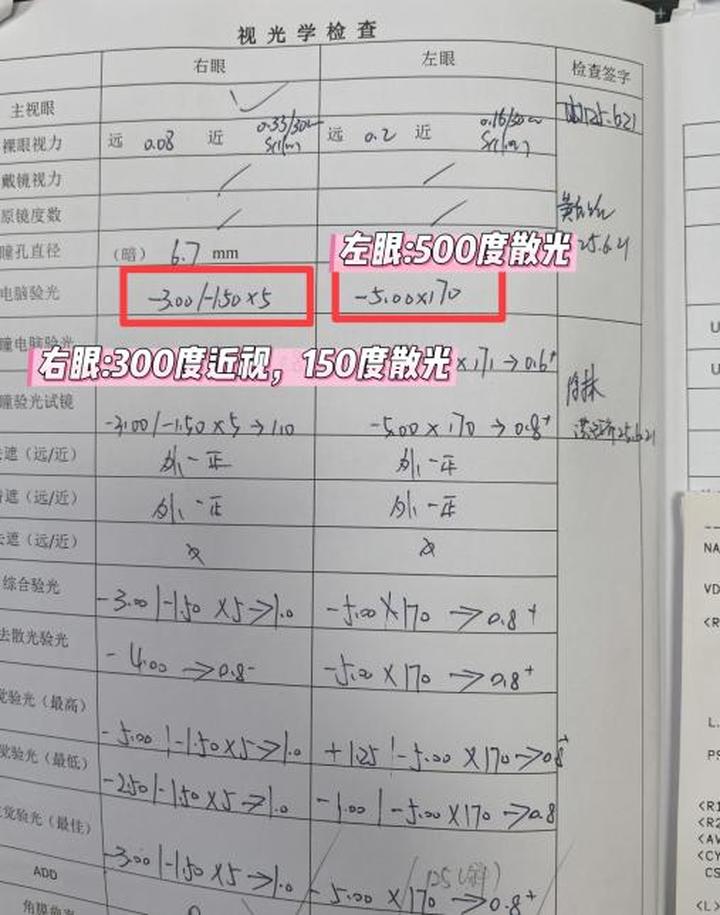 视光学检查
右眼 左眼 检查签字
主视眼 ✓
裸眼视力 远 0.08 近 0.33/30cm 远 0.2 近 0.16/30cm
戴镜视力 / /
原镜度数 / /
瞳孔直径 (暗) 6.7 mm
25.6.21
左眼:500度散光
电脑验光 -3.00/-1.50×5 -5.00×170
瞳电脑验光
右眼:300度近视，150度散光
×171→0.6+
瞳验光试镜 -3.00/-1.50×5→1.0 -5.00×170→0.8+
25.6.21
遮（远/近） 外一正 外一正
遮（远/近） 外一正 外一正
遮（远/近）
综合验光 -3.00/-1.50×5→1.0 -5.00×170→0.8+
去散光验光 -4.00→0.8- -5.00×170→0.8+
觉验光（最高） -5.00/-1.50×5→1.0 +1.25/-5.00×170→0.8+
觉验光（最低） -2.50/-1.50×5→1.0 -1.00/-5.00×170→0.8
觉验光（最佳） -3.00/-1.50×5→1.0 -5.00×170→0.8+
ADD
角膜曲率
NA
VD
<R
L.
PS
<R1
<R2
<AV
<CY
CS
<L>